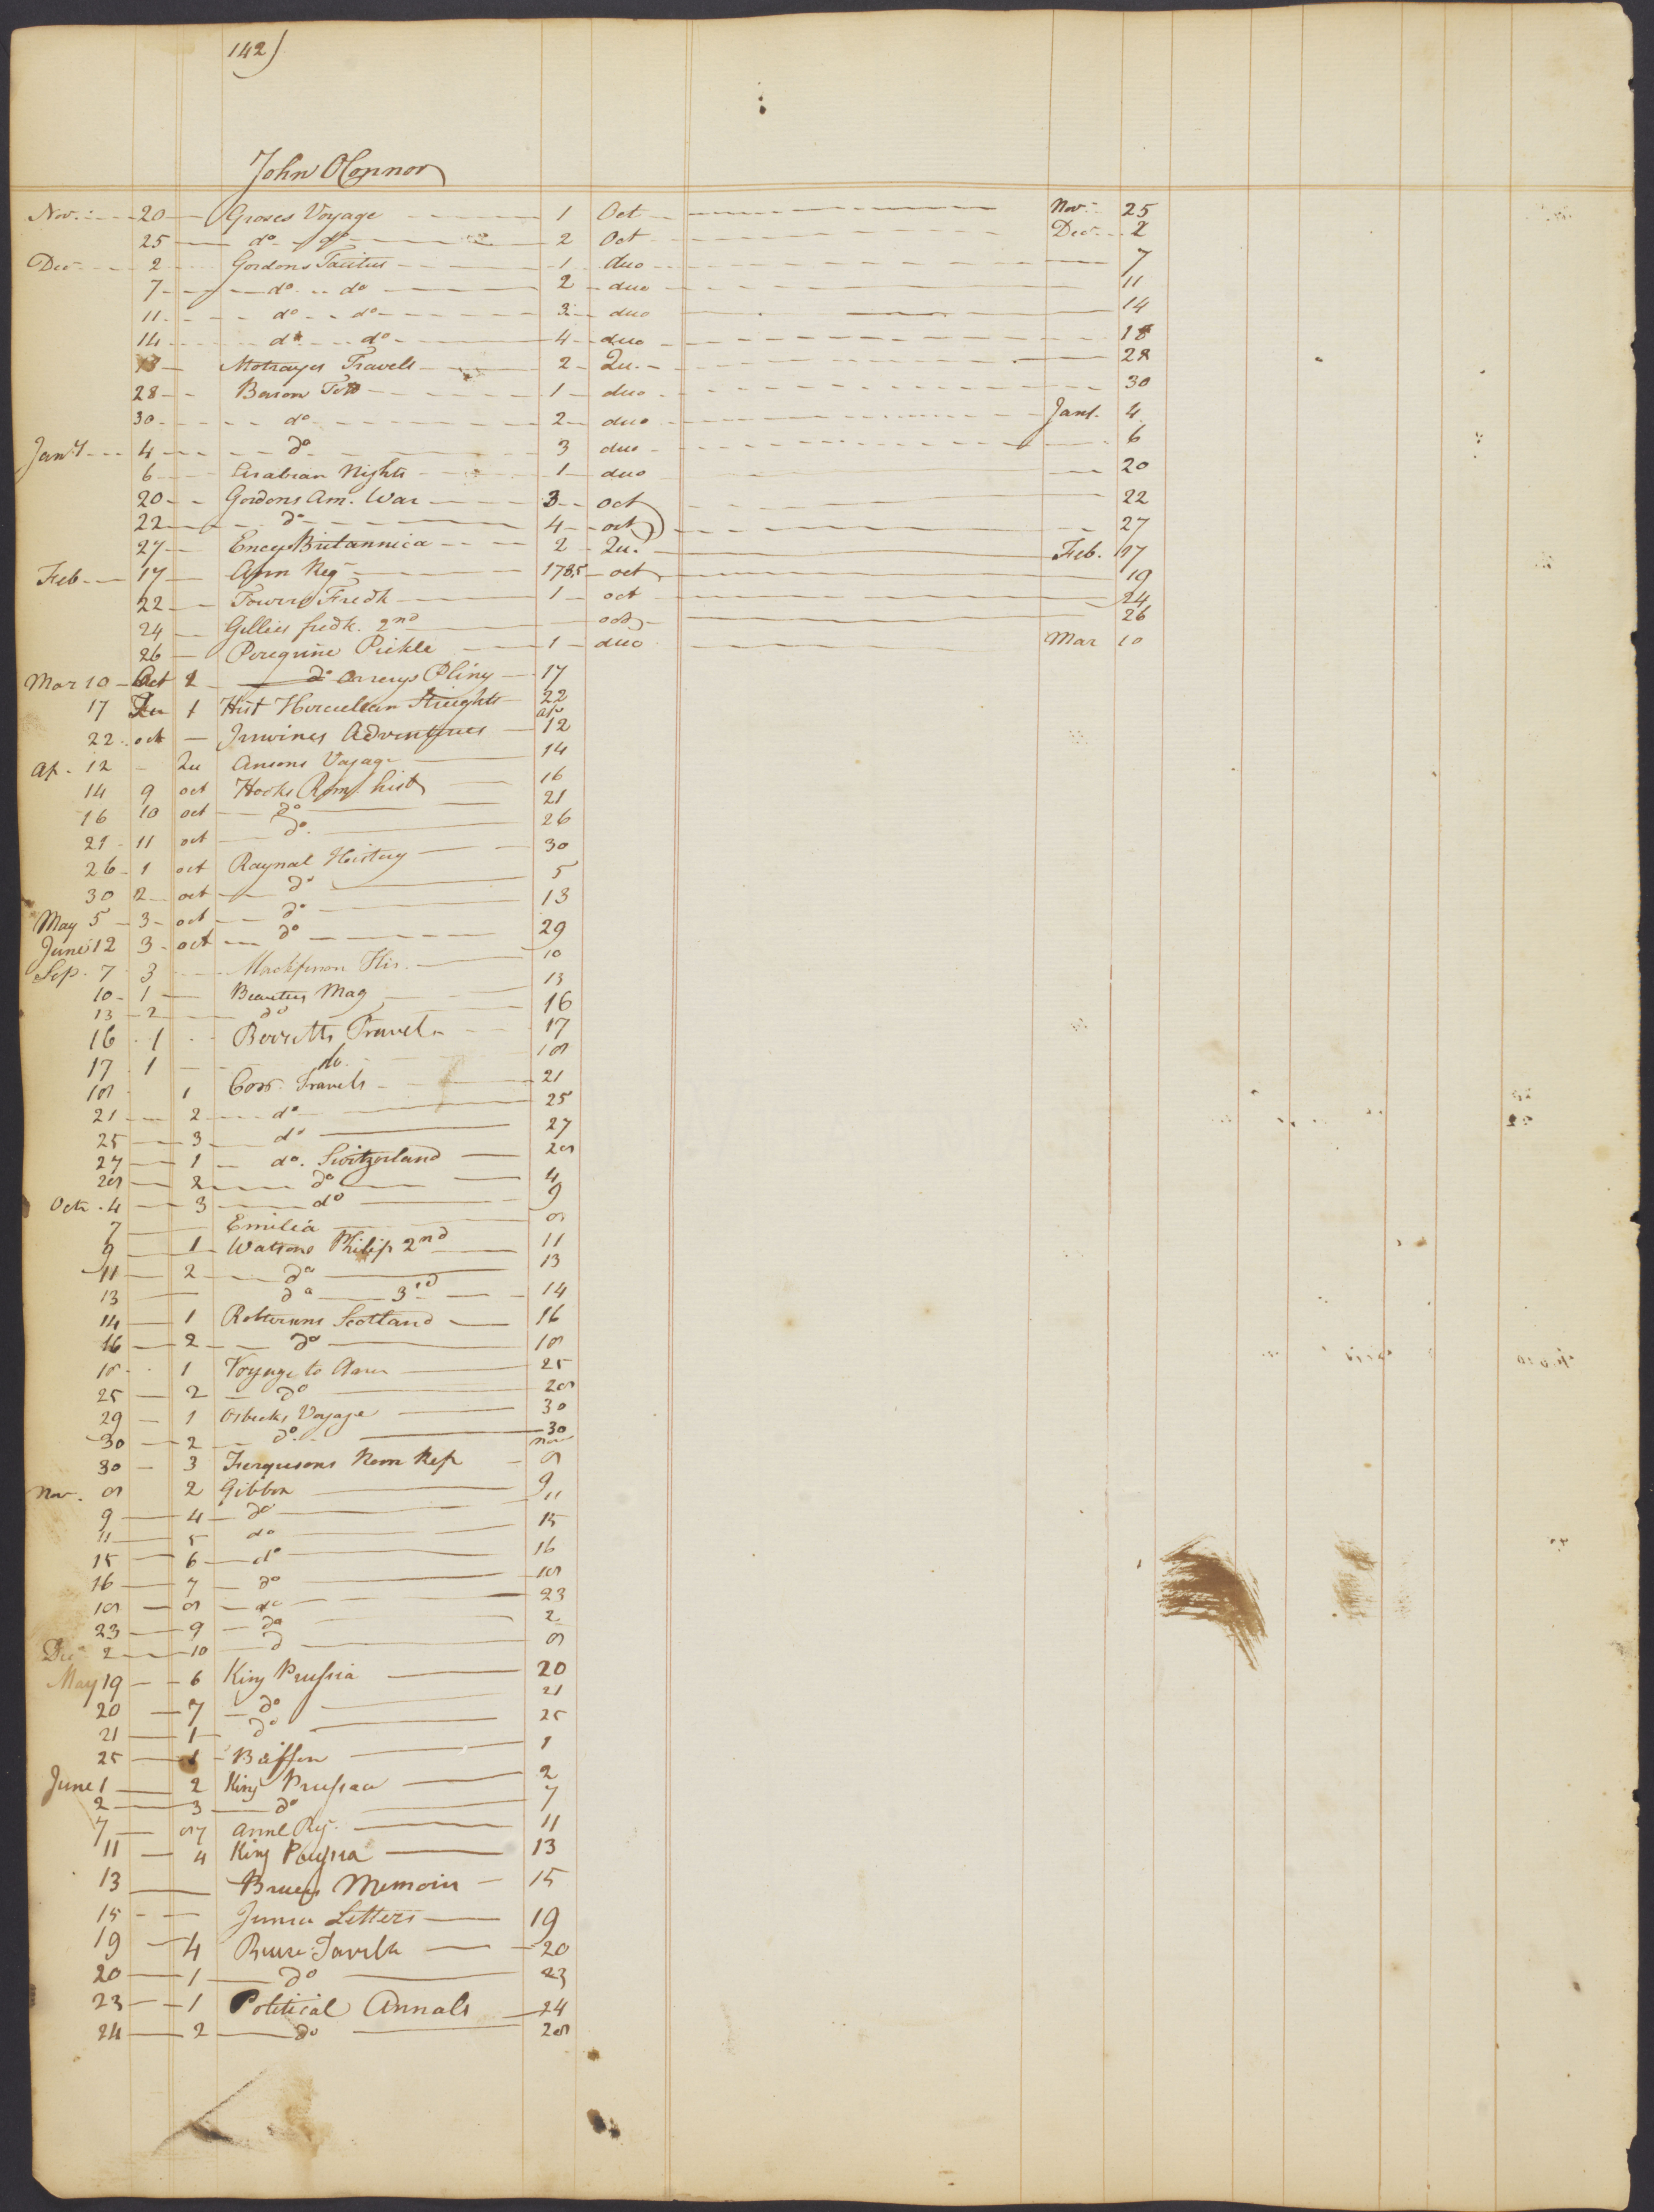 142)
John OConnor
Nov. 20 Groses Voyage 1 Oct Nov. 25
25 do do 2 Oct Dec 2
Dec 2 Gordons Tacitus 1 duo 7
7 do do 2 duo 11
11 do do 3 duo 14
14 do do 4 duo 18
18 Motrayes Travels 2 Qu. 28
28 Baron Tott 1 duo 30
30 do 2 duo Jany. 4
Jany 4 do 3 duo 6
6 Arabian Nights 1 duo 20
20 Gordons Am. War 3 oct 22
22 do 4 oct 27
27 Ency Britannica 2 Qu. Feb. 17
Feb 17 Ann Reg 1785 oct 19
22 Towers Fredk 1 oct 24
24 Gillies fredk. 2nd oct 26
26 Peregrine Pickle 1 duo Mar 10
Mar 10 Oct 2 do Orrerys Pliny 17
17 Qu 1 Hist Herculean Streights 22
ap
22 oct Irwines Adventures 12
Ap. 12 Qu Ansons Voyage 14
14 9 oct Hooks Rom hist 16
16 10 oct do 21
21 11 oct do 26
26 1 oct Raynal History 30
30 2 oct do 5
May 5 3 oct do 13
June 12 3 oct do 29
Sep. 7 3 Mackferson His. 10
10 1 Beauties Mag 13
13 2 do 16
16 1 Berretts Travels 17
17 1 do 18
18 1 Cox Travels 21
21 2 do 25
25 3 do 27
27 1 do. Switzerland 28
28 2 do 4
Octr. 4 3 do 9
7 Emilia 8
9 1 Watsons Philip 2nd 11
11 2 do 13
13 do 3rd 14
14 1 Robersons Scotland 16
16 2 do 18
18 1 Voyage to Amer 25
25 2 do 28
29 1 Osbecks Voyage 30
30 2 do 30
Nov
30 3 Fergusons Rom Rep 8
Nov. 8 2 Gibbon 9
9 4 do 11
11 5 do 15
15 6 do 16
16 7 do 18
18 8 do 23
23 9 do 2
Dec 2 10 d 8
May 19 6 King Prussia 20
20 7 do 21
21 1 do 25
25 1 Buffon 1
June 1 2 King Prussia 2
2 3 do 7
7 87 Annl Reg. 11
11 4 King Prussia 13
13 Bruces Memoirs 15
15 Junius Letters 19
19 4 Bruse Tavels 20
20 1 do 23
23 1 Political Annals 24
24 2 do 28